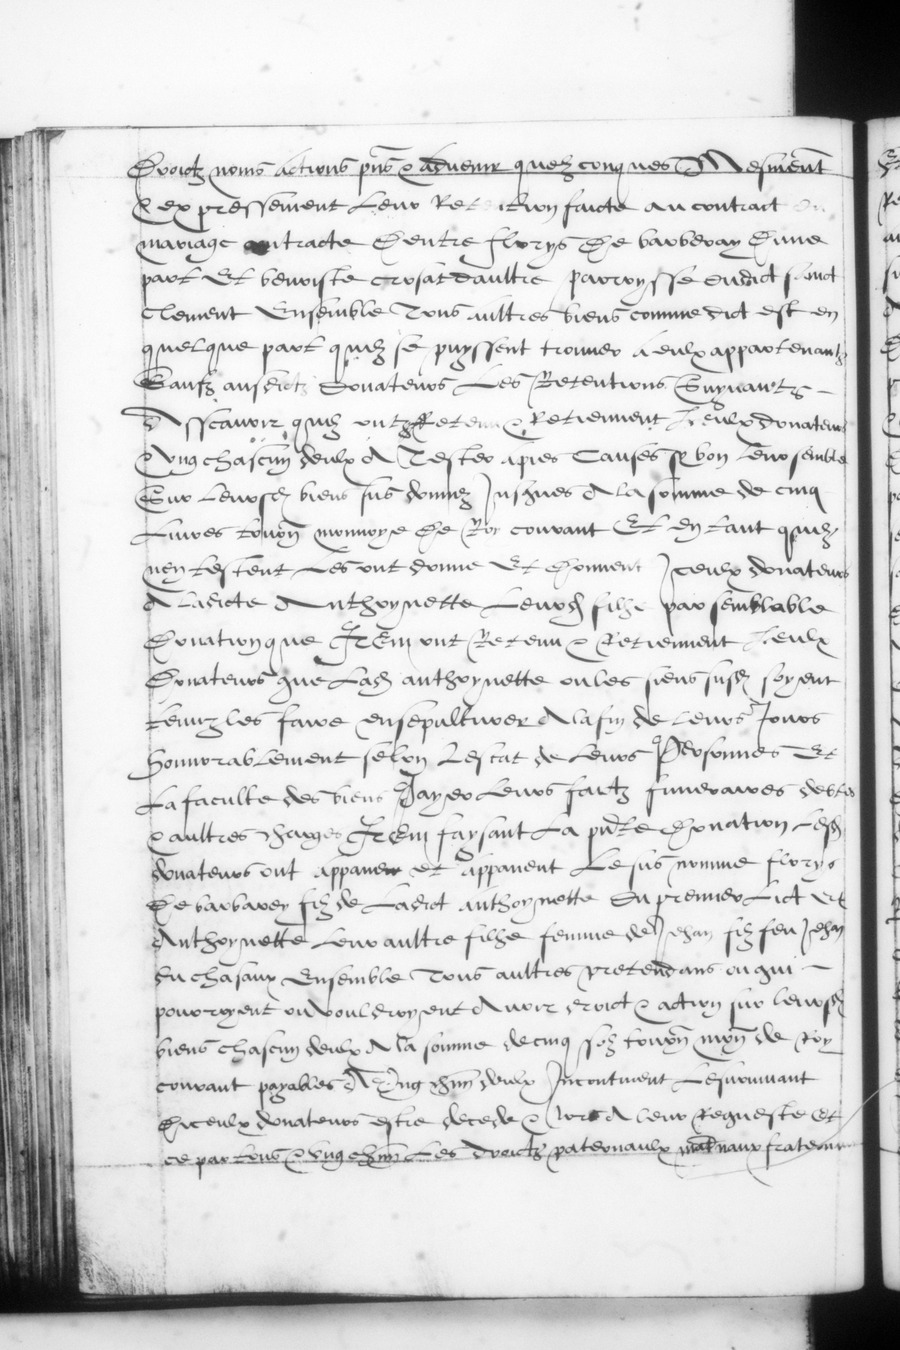 Droictz noms actions pñs & advenir quelz conques Mesment
& expressement leur Retention faicte au contraict du
mariage contracte Dentre florys De barberay Dune
part Et benoiste crosat daultre parroysse dudict sainct
Clement Ensemble Tous aultres biens comme dict est en
quelque part quilz se puyssent trouver a eulx appartenantz
Saufz ausdictz Donateurs Les Retentions Suyvants
Asscavoir quilz ont Retenu & Retiennent A eulx donateurs
& Ung chascun deulx A Tester a pies Causes si bon Leur semble
Sur Leursd biens sus donnez Jusques A la somme de cinq
Livres tourn monnoye De Roy courant Et en tant quilz
nen testent Les ont donne Et Donnent Iceulx donateurs
A Ladicte Anthoynette Leurd filhe par semblable
Donation que Item ont Retenu & Retiennent Iceulx
Donateurs que Lad anthoynette ou les siens susd soyent
tenuz les faire ensepulturer A la fin de leurs Jours
Honnorablement selon Lestat de Leurs Personnes Et
La faculte des biens Payer Leurs faictz funeraires debtes
& aultres charges Item faysant La pnte Donation Lesd
donateurs ont appane et appanent Le sus nomme florys
De barbarey filz de Ladict anthoynette Du premier Lict Et
Anthoynette Leur aultre filhe femme de Jehan filz feu Jehan
du chasaux Ensemble Tous aultres pretendans ou qui
pourroyent ou vouldroyent Avoir droict & action sur leursd
biens chascun deulx A la somme de cinq solz tourn mon de Roy
courant payables A Ung chun deulx Incontinent Lesurvivant
Diceulx donateurs estre decede & lors A leur Requeste Et
ce par tous & ung chun Les droictz paternaulx maternaux fraternaulx